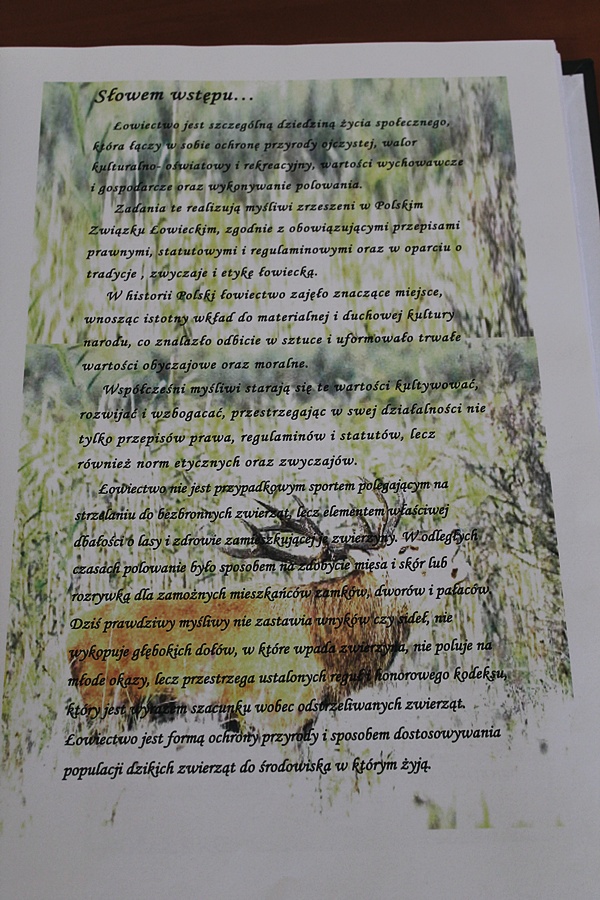 Słowem wstępu...
Łowiectwo jest szczególną dziedziną życia społecznego,
która łączy w sobie ochronę przyrody ojczystej, walor
kulturalno- oświatowy i rekreacyjny, wartości wychowawcze
i gospodarcze oraz wykonywanie polowania.
Zadania te realizują myśliwi zrzeszeni w Polskim
Związku Łowieckim, zgodnie z obowiązującymi przepisami
prawnymi, statutowymi i regulaminowymi oraz w oparciu o
tradycje , zwyczaje i etykę łowiecką.
W historii Polski łowiectwo zajęło znaczące miejsce,
wnosząc istotny wkład do materialnej i duchowej kultury
narodu, co znalazło odbicie w sztuce i uformowało trwałe
wartości obyczajowe oraz moralne.
Współcześni myśliwi starają się te wartości kultywować,
rozwijać i wzbogacać, przestrzegając w swej działalności nie
tylko przepisów prawa, regulaminów i statutów, lecz
również norm etycznych oraz zwyczajów.
Łowiectwo nie jest przypadkowym sportem polegającym na
strzelaniu do bezbronnych zwierząt, lecz elementem właściwej
dbałości o lasy i zdrowie zamieszkującej je zwierzyny. W odległych
czasach polowanie było sposobem na zdobycie mięsa i skór lub
rozrywką dla zamożnych mieszkańców zamków, dworów i pałaców.
Dziś prawdziwy myśliwy nie zastawia wnyków czy sideł, nie
wykopuje głębokich dołów, w które wpada zwierzyna, nie poluje na
młode okazy, lecz przestrzega ustalonych reguł i honorowego kodeksu,
który jest wyrazem szacunku wobec odstrzeliwanych zwierząt.
Łowiectwo jest formą ochrony przyrody i sposobem dostosowywania
populacji dzikich zwierząt do środowiska w którym żyją.